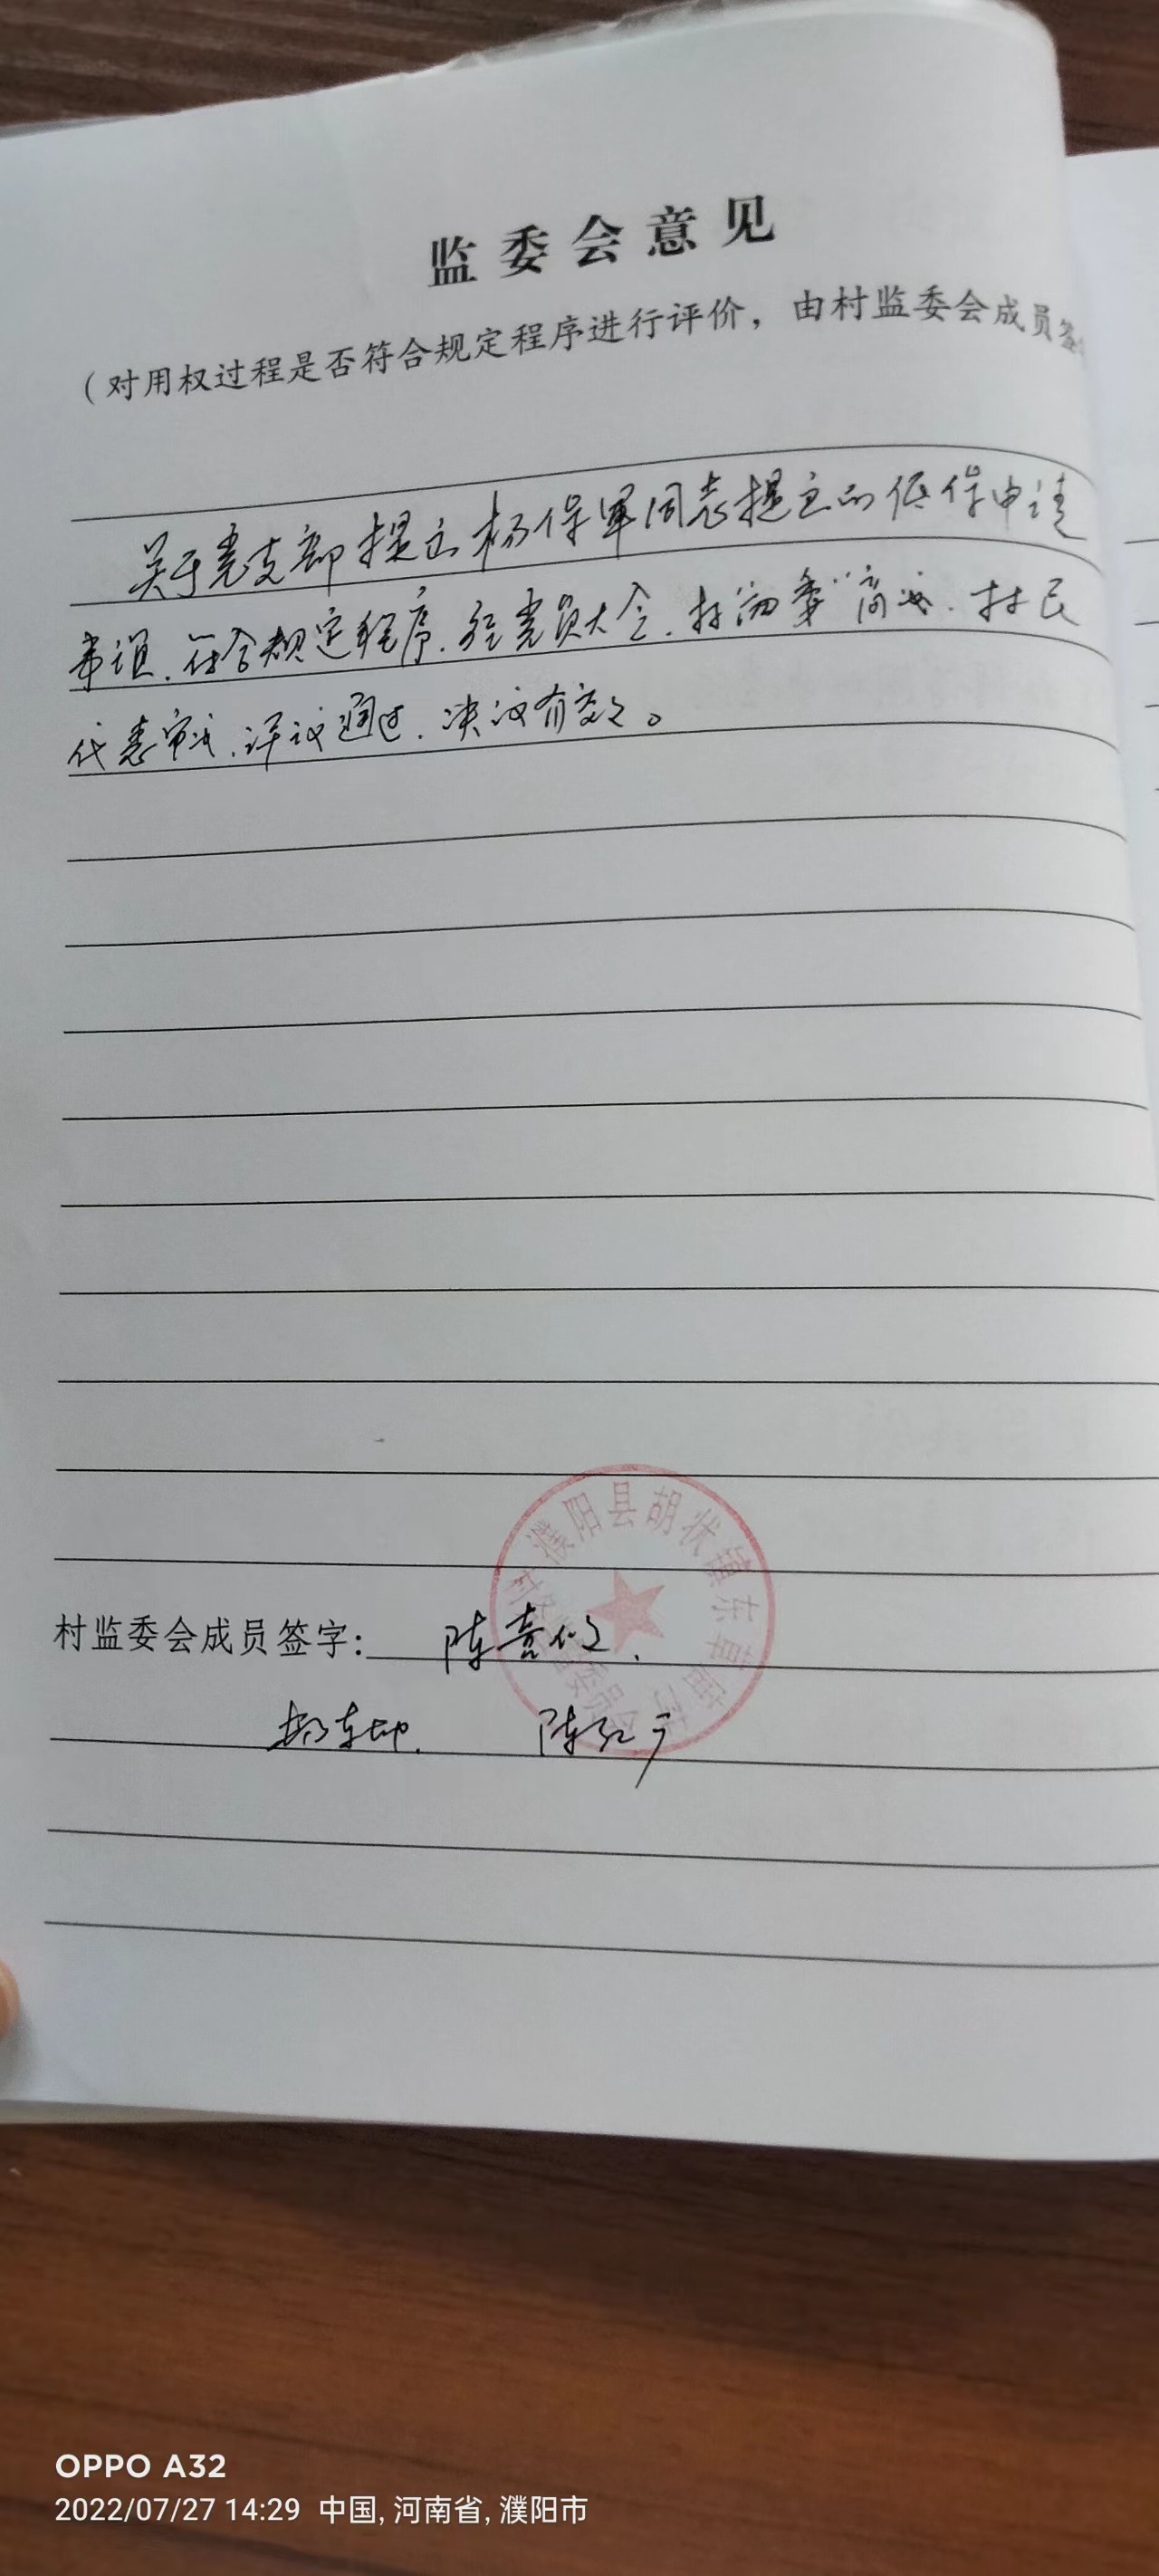 监委会意见
（对用权过程是否符合规定程序进行评价，由村监委会成员签
关于党支部提出杨保军同志提出的低保申请
事项，符合规定程序，经党员大会，村两委"商议，村民
代表审议，评议通过，决议有效。
濮阳县胡状镇东草
村监委会成员签字：陈喜
陈红广
OPPO A32
2022/07/27 14:29 中国, 河南省, 濮阳市